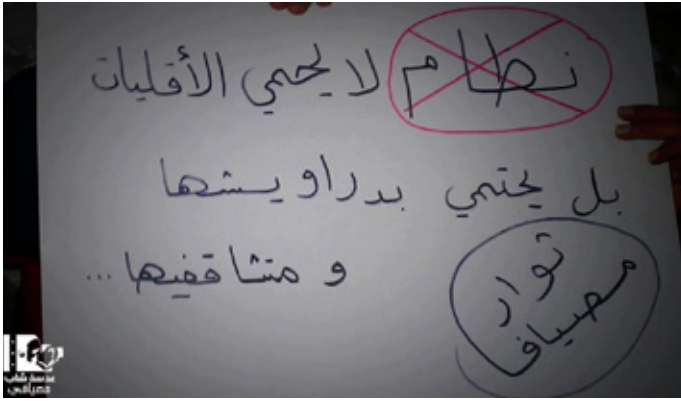 نظام لا يحمي الأقليات
بل يحتمي بدراويشها
و متثاقفيها...
ثوار
مصياف
عدسة شاب
مصيافي